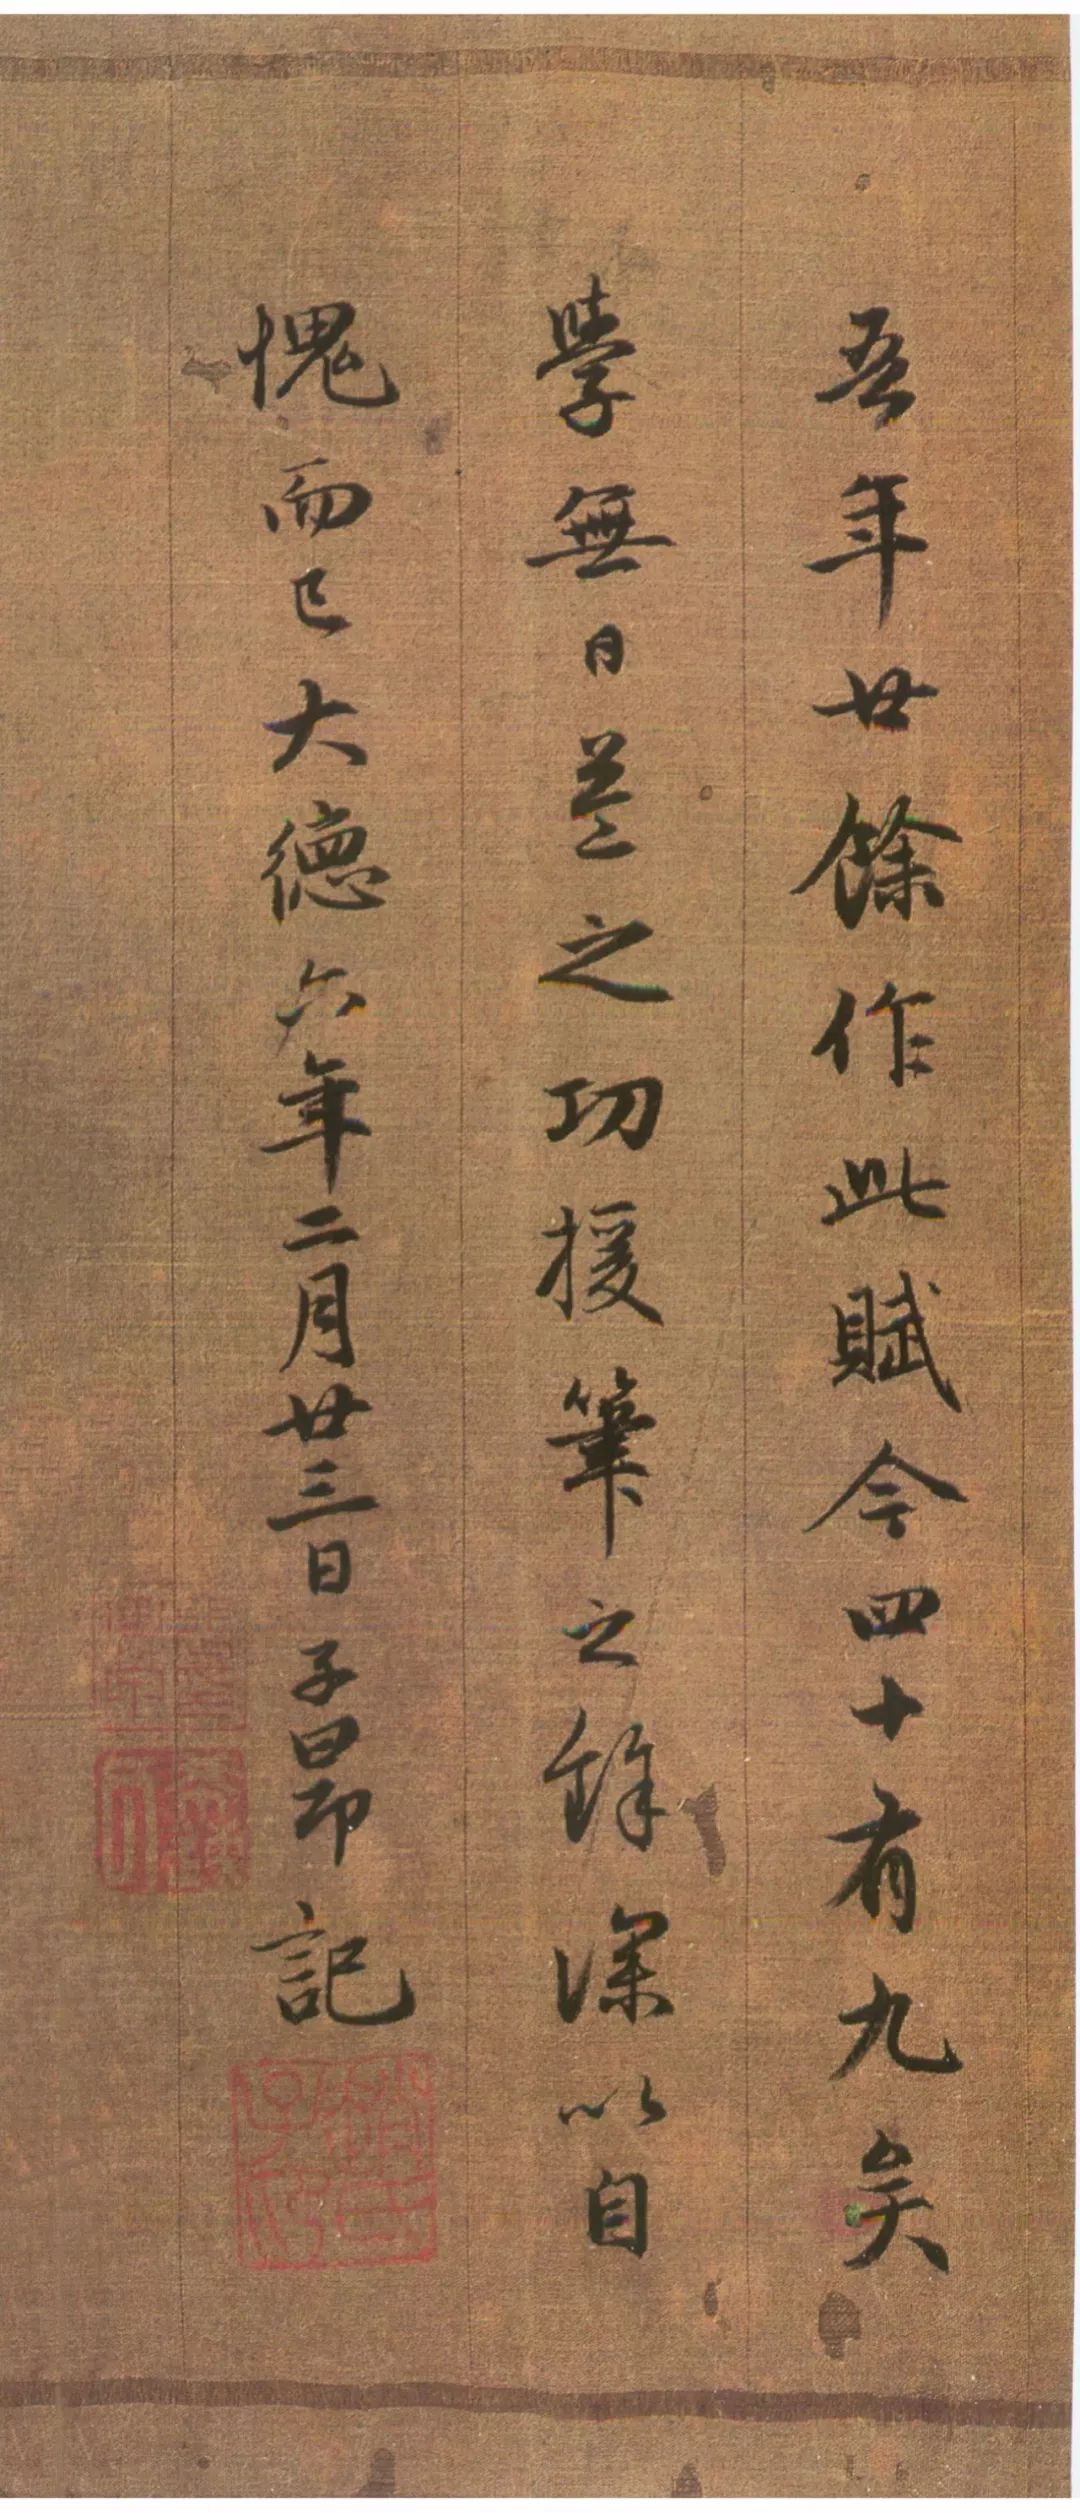 吾年廿餘作此賦今四十有九矣
學無日益之功援筆之餘深以自
愧而已大德六年二月廿三日子昂記
趙氏子昂